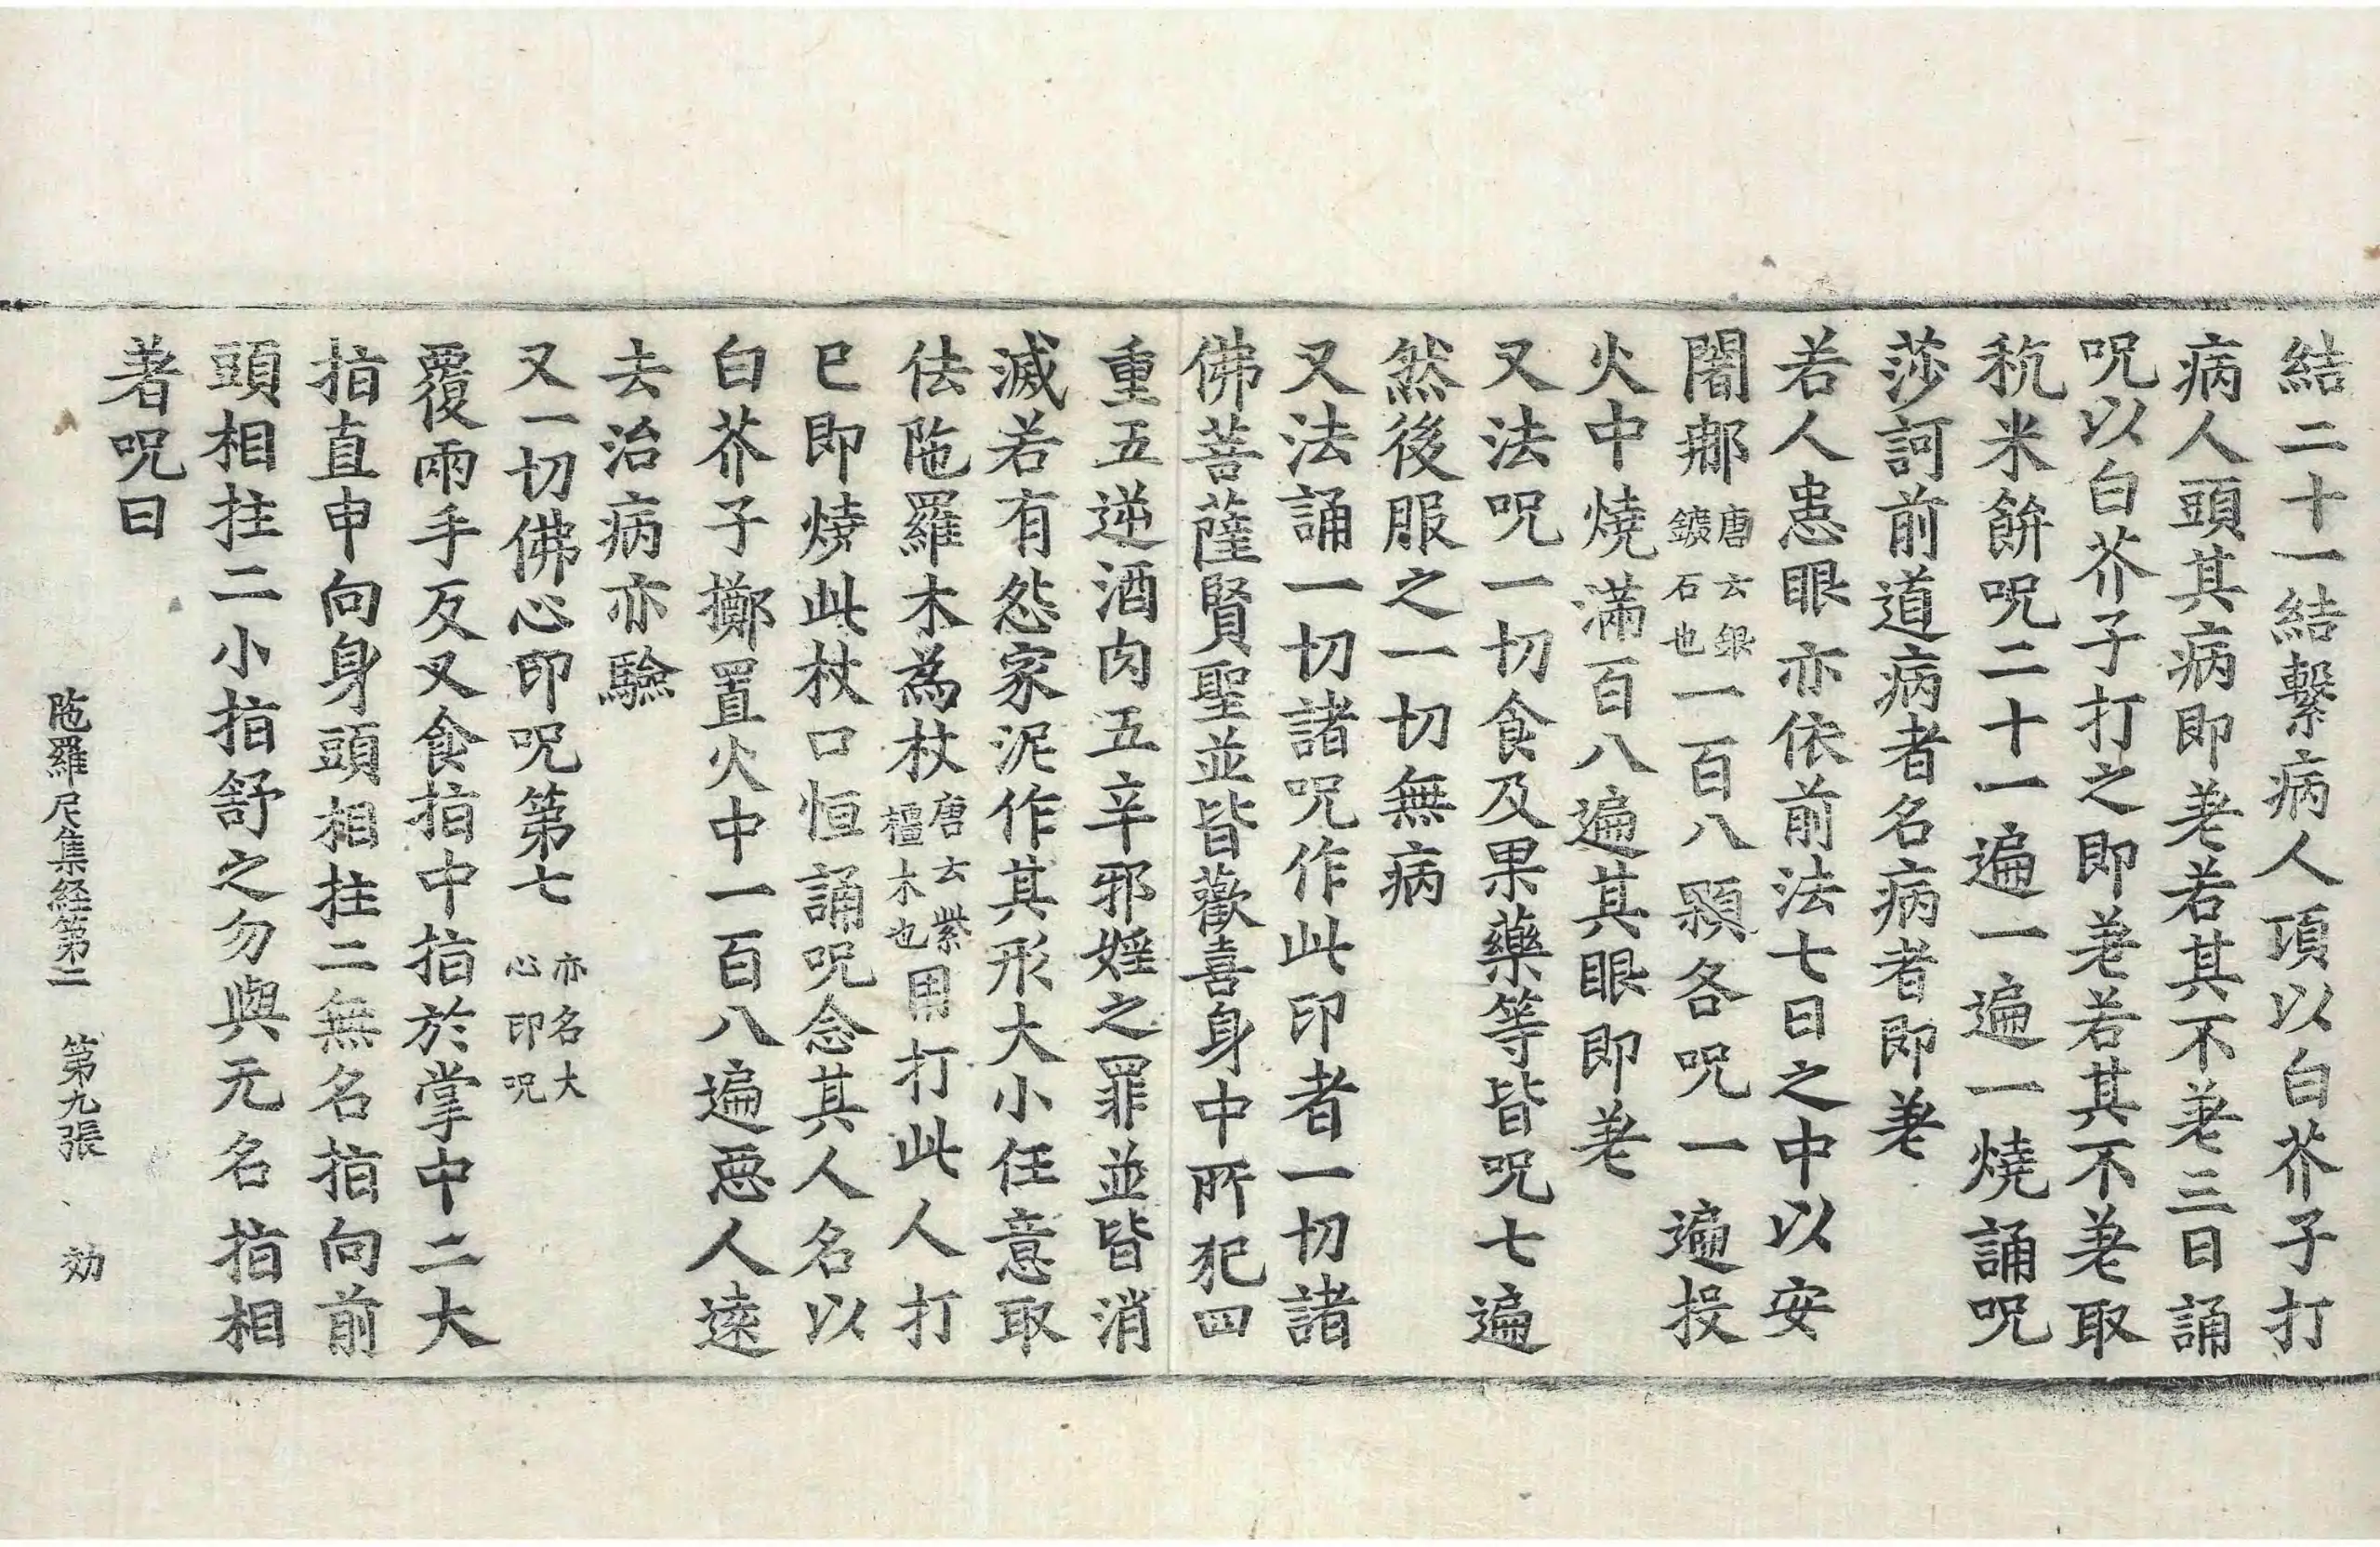 結二十一結繫病人項以白芥子打
病人頭其病即差若其不差三日誦
呪以白芥子打之即差若其不差取
秔米餅呪二十一遍一遍一燒誦呪
莎訶前道病者名病者即差
若人患眼亦依前法七日之中以安
闍那唐云銀鑛石也一百八顆各呪一遍投
火中燒滿百八遍其眼即差
又法呪一切食及果藥等皆呪七遍
然後服之一切無病
又法誦一切諸呪作此印者一切諸
佛菩薩賢聖並皆歡喜身中所犯四
重五逆酒肉五辛邪婬之罪並皆消
滅若有怨家泥作其形大小任意取
佉陁羅木為杖唐云紫橿木也用打此人打
已即燒此杖口恒誦呪念其人名以
白芥子擲置火中一百八遍惡人遠
去治病亦驗
又一切佛心印呪第七亦名大心印呪
覆兩手反叉食指中指於掌中二大
指直申向身頭相拄二無名指向前
頭相拄二小指舒之勿與无名指相
著呪曰
陁羅尼集経第二 第九張 効